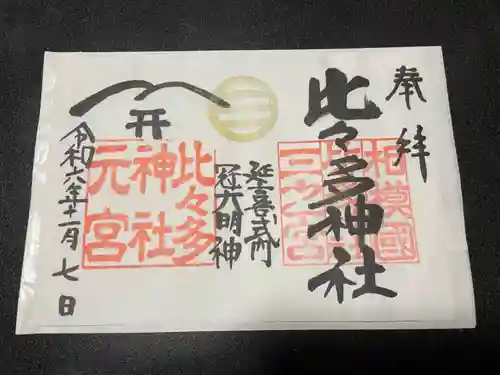 奉拝
比々多神社
相模國
三之宮
延喜式内
冠大明神
比々多
神社
元宮
令和六年十一月七日